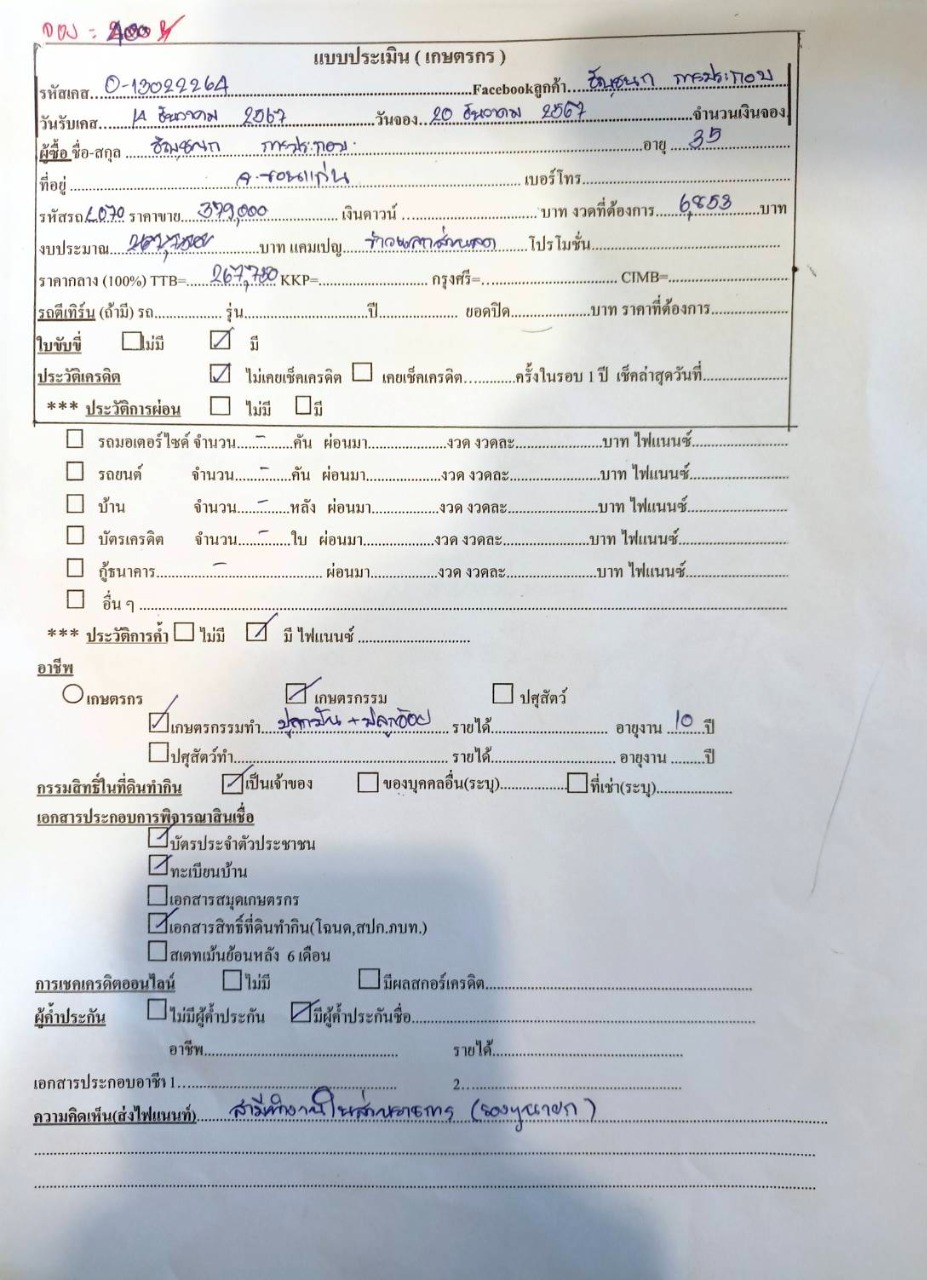 จอง =
แบบประเมิน ( เกษตรกร )
รหัสเคส...O-13022264...Facebookลูกค้า... ธัญชนก การประกอบ
วันรับเคส... 14 ธันวาคม 2567...วันจอง...20 ธันวาคม 2567...จำนวนเงินจอง
ผู้ซื้อ ชื่อ-สกุล ...ธัญชนก การประกอบ...อายุ ...35
ที่อยู่ ...จ.ขอนแก่น... เบอร์โทร...
รหัสรถ L070 ราคาขาย...379,000... เงินดาวน์ ... บาท งวดที่ต้องการ...6,853...บาท
งบประมาณ... บาท แคมเปญ... โปรโมชั่น...
ราคากลาง (100%) TTB=...267,750 KKP=... กรุงศรี=... CIMB=...
รถตีเทิร์น (ถ้ามี) รถ... รุ่น...ปี... ยอดปิด...บาท ราคาที่ต้องการ...
ใบขับขี่ ☐ไม่มี ☑ มี
ประวัติเครดิต ☑ ไม่เคยเช็คเครดิต ☐ เคยเช็คเครดิต...ครั้งในรอบ 1 ปี เช็คล่าสุดวันที่...
*** ประวัติการผ่อน ☐ ไม่มี ☐มี
☐ รถมอเตอร์ไซด์ จำนวน...-...คัน ผ่อนมา...งวด งวดละ...บาท ไฟแนนซ์...
☐ รถยนต์ จำนวน...-...คัน ผ่อนมา...งวด งวดละ...บาท ไฟแนนซ์...
☐ บ้าน จำนวน...-...หลัง ผ่อนมา...งวด งวดละ...บาท ไฟแนนซ์...
☐ บัตรเครดิต จำนวน...-...ใบ ผ่อนมา...งวด งวดละ...บาท ไฟแนนซ์...
☐ กู้ธนาคาร...-... ผ่อนมา...งวด งวดละ...บาท ไฟแนนซ์...
☐ อื่น ๆ ...
*** ประวัติการค้ำ ☐ ไม่มี ☑ มี ไฟแนนซ์ ...
อาชีพ
○เกษตรกร ☑ เกษตรกรรม ☐ ปศุสัตว์
☑เกษตรกรรมทำ... ปลูกมัน + ปลูกอ้อย ... รายได้... อายุงาน ...10 ปี
☐ปศุสัตว์ทำ... รายได้... อายุงาน ...ปี
กรรมสิทธิ์ในที่ดินทำกิน ☑เป็นเจ้าของ ☐ ของบุคคลอื่น(ระบุ)...☐ที่เช่า(ระบุ)...
เอกสารประกอบการพิจารณาสินเชื่อ
☑บัตรประจำตัวประชาชน
☑ทะเบียนบ้าน
☐เอกสารสมุดเกษตรกร
☑เอกสารสิทธิ์ที่ดินทำกิน(โฉนด,สปก.ภบท.)
☐สเตทเม้นย้อนหลัง 6 เดือน
การเชคเครดิตออนไลน์ ☐ไม่มี ☐มีผลสกอร์เครดิต...
ผู้ค้ำประกัน ☐ไม่มีผู้ค้ำประกัน ☑มีผู้ค้ำประกันชื่อ...
อาชีพ... รายได้...
เอกสารประกอบอาชีา 1... 2...
ความคิดเห็น(ส่งไฟแนนท์)...สามีทำงานใน